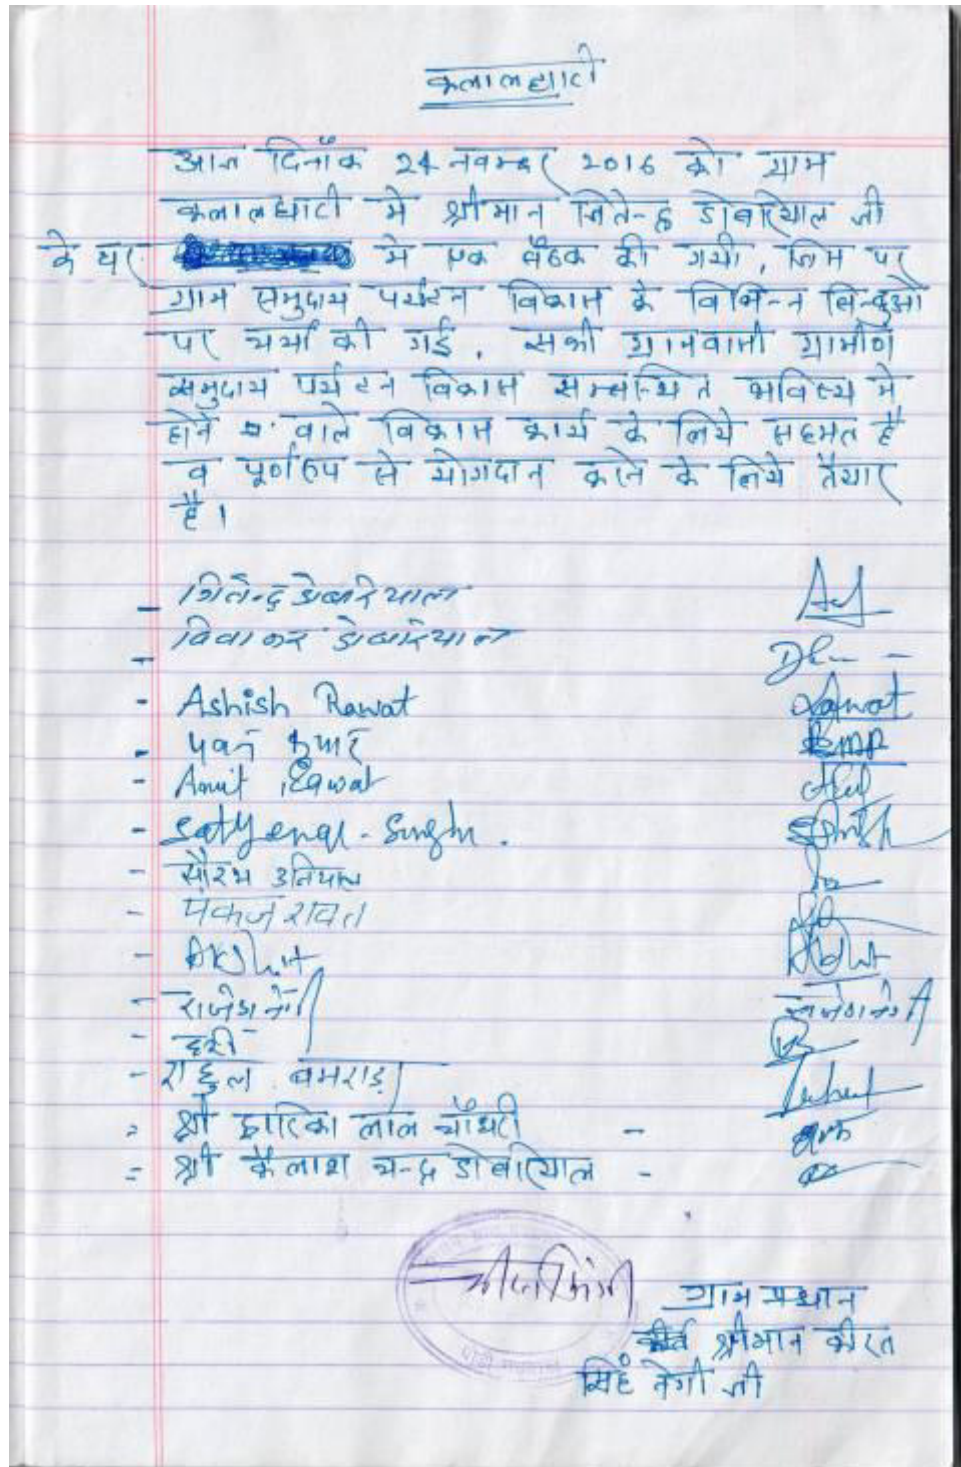 कलालघाटी
आज दिनाँक 24 नवम्बर 2016 को ग्राम
कलालघाटी मे श्रीमान जितेन्द्र डोबरियाल जी
के घर मे एक बैठक की गयी, जिस पर
ग्राम समुदाय पर्यटन विकास के विभिन्न बिन्दुओ
पर चर्चा की गई, सभी ग्रामवासी ग्रामीण
समुदाय पर्यटन विकास सम्बन्धित भविष्य मे
होने वाले विकास कार्य के लिये सहमत है
व पूर्णरुप से योगदान करने के लिये तैयार
है।
- जितेन्द्र डोबरियाल
- दिवाकर डोबरियाल
- Ashish Rawat Rawat
- पवन कुमार
- Amit Rawat
- Satyenar. Singh.
- सौरभ उनियाल
- पंकज रावत
- Akshit
- राजेश नेगी राजेश नेगी
- हरी
- राहुल बमराड़ा
= श्री द्वारिका लाल चौधरी -
= श्री कैलाश चन्द्र डोबरियाल -
ग्राम प्रधान
श्रीमान कीरत
सिंह नेगी जी